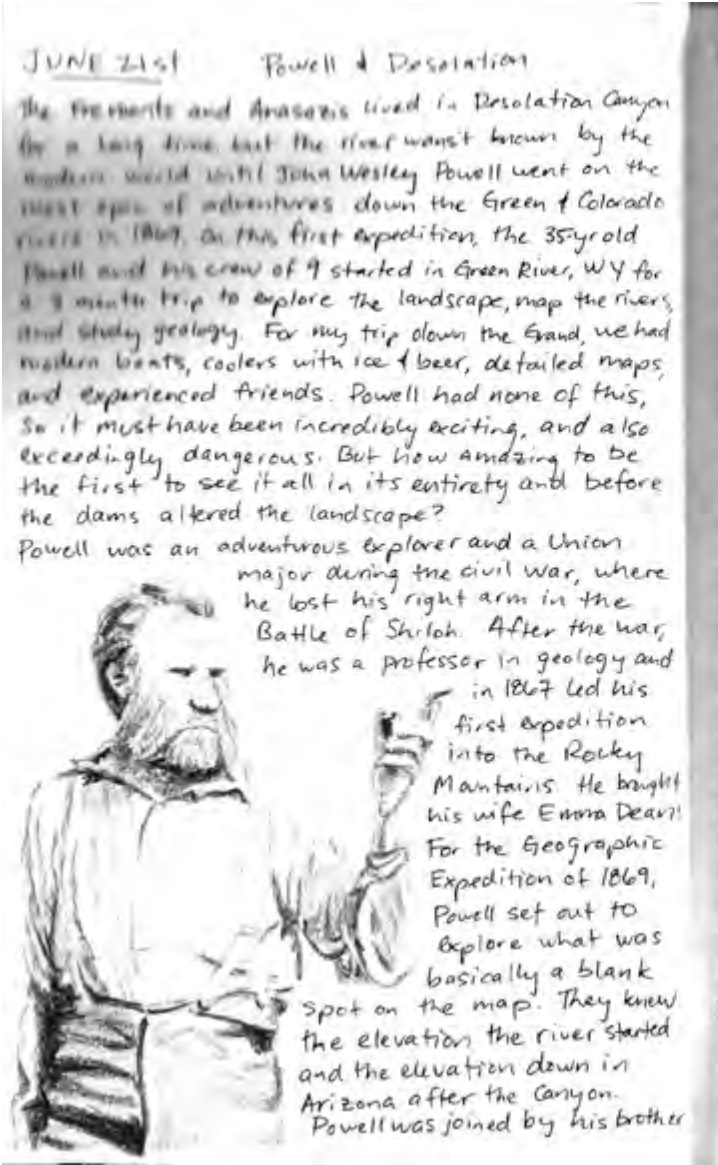 JUNE 21st Powell & Desolation
The Fremonts and Anasazis lived in Desolation Canyon
for a long time but the river wasn't known by the
modern world until John Wesley Powell went on the
most epic of adventures down the Green & Colorado
rivers in 1869. On this first expedition, the 35-yr old
Powell and his crew of 9 started in Green River, WY for
a 3 month trip to explore the landscape, map the rivers,
and study geology. For my trip down the Grand, we had
modern boats, coolers with ice & beer, detailed maps,
and experienced friends. Powell had none of this,
So it must have been incredibly exciting, and also
exceedingly dangerous. But how amazing to be
the first to see it all in its entirety and before
the dams altered the landscape?
Powell was an adventurous explorer and a Union
major during the civil war, where
he lost his right arm in the
Battle of Shiloh. After the war,
he was a professor in geology and
in 1867 led his
first expedition
into the Rocky
Mountains. He brought
his wife Emma Dean!
For the Geographic
Expedition of 1869,
Powell set out to
explore what was
basically a blank
spot on the map. They knew
the elevation the river started
and the elevation down in
Arizona after the Canyon.
Powell was joined by his brother